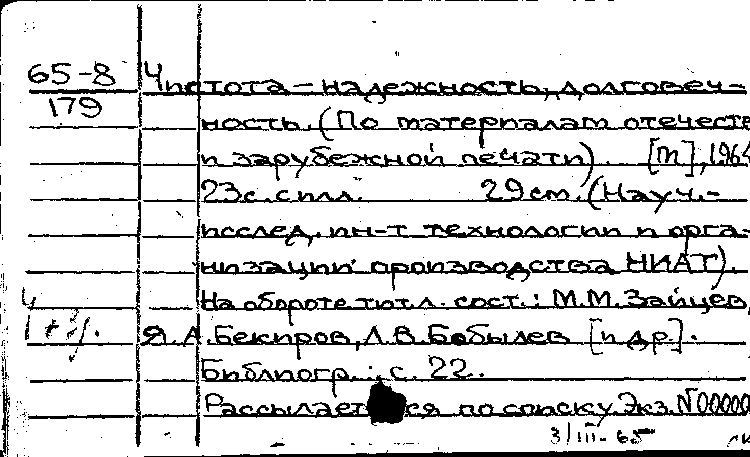 65-8 Чистота – надежность, долговеч-
179
ность. (По материалам отечеств
и зарубежной печати). [М], 1964
23с. с илл. 29 см. (Науч.-
исслед. ин-т технологии и орга-
низации производства НИАТ).
На обороте тит. л. сост.: М.М. Зайцев,
Я.А. Бекиров, Л.В. Бобылев [и др.].
Библиогр.: с. 22.
Рассылается по списку. Экз. N 00000
3/III-65